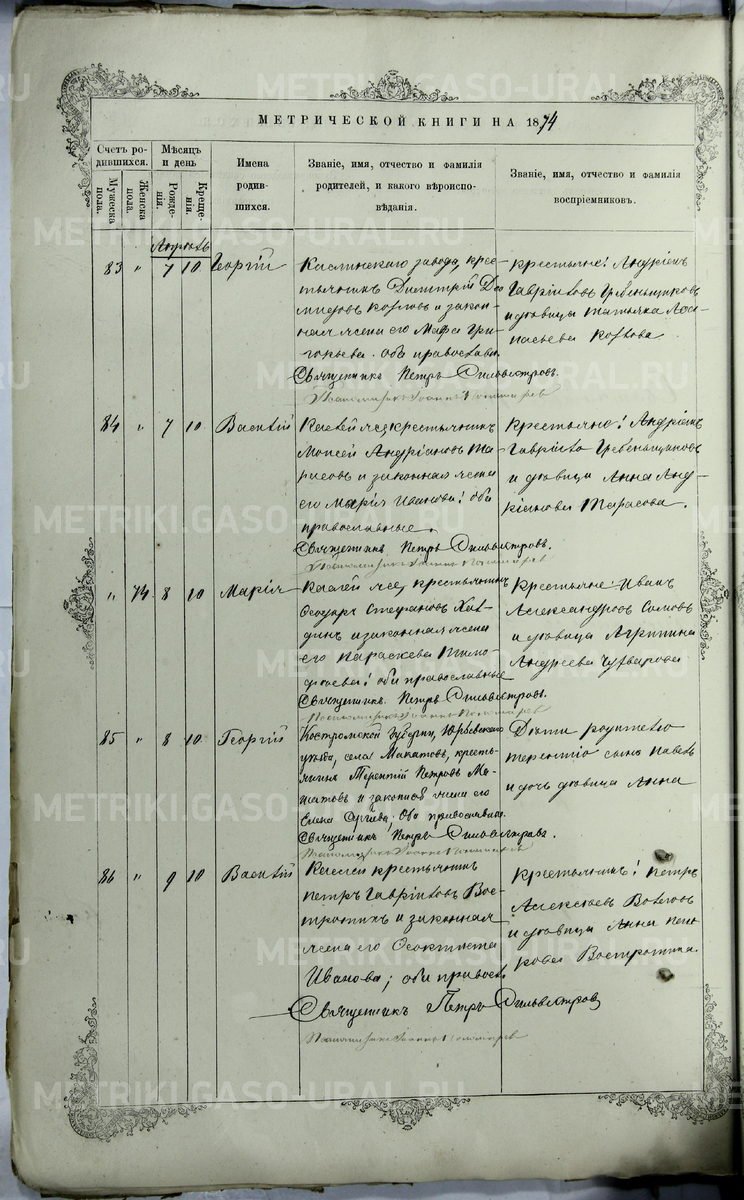 МЕТРИЧЕСКОЙ КНИГИ НА 1874
Счетъ родившихся.
Мужеска пола.
Женска пола.
Мѣсяцъ и день
Рожденія.
Крещенія.
Имена родившихся.
Званіе, имя, отчество и фамилія родителей, и какого вѣроисповѣданія.
Званіе, имя, отчество и фамилія воспріемниковъ.
Апрѣль
83 " 7 10 Георгій
Каслинскаго завода, крес-
тьянинъ Димитрій Део-
мидовъ Козловъ и закон-
ная жена его Марѳа Гри-
горьева. Оба православн.
Священникъ Петръ Сильвестровъ.
Крестьяне: Андріанъ
Гавріиловъ Гребеньщиковъ
и дѣвица Татьяна
Козлова
84 " 7 10 Василій
крестьянинъ
Моисей Андріановъ Та-
расовъ и законная жена
его Марія Иванова; оба
православные.
Священникъ Петръ Сильвестровъ.
Крестьяне: Андріанъ
Гавріиловъ Гребеньщиковъ
и дѣвица Анна Анд-
ріанова Тарасова.
" 74 8 10 Марія
крестьянинъ
Ѳеодоръ Стефановъ Хал-
динъ и законная жена
его Параскева Тимо-
ѳеева; оба православные
Священникъ Петръ Сильвестровъ.
Крестьяне: Иванъ
Александровъ
и дѣвица Агрипина
Андреева
85 " 8 10 Георгій
Костромской губерніи, Юрьевскаго
уѣзда, села крестья-
нинъ Терентій Петровъ
и законная жена его
Елена Сергѣева; Оба православные.
Священникъ Петръ Сильвестровъ.
Дѣти родителя
Терентія сынъ Павелъ
и дочь дѣвица Анна
86 " 9 10 Василій
крестьянинъ
Петръ Гавріиловъ Вос-
тротинъ и законная
жена его Ѳеоктиста
Иванова; оба правосл.
Священникъ Петръ Сильвестровъ
Крестьянинъ: Петръ
Алексѣевъ
и дѣвица Анна
Востротина.
METRIKI.GASO-URAL.RU